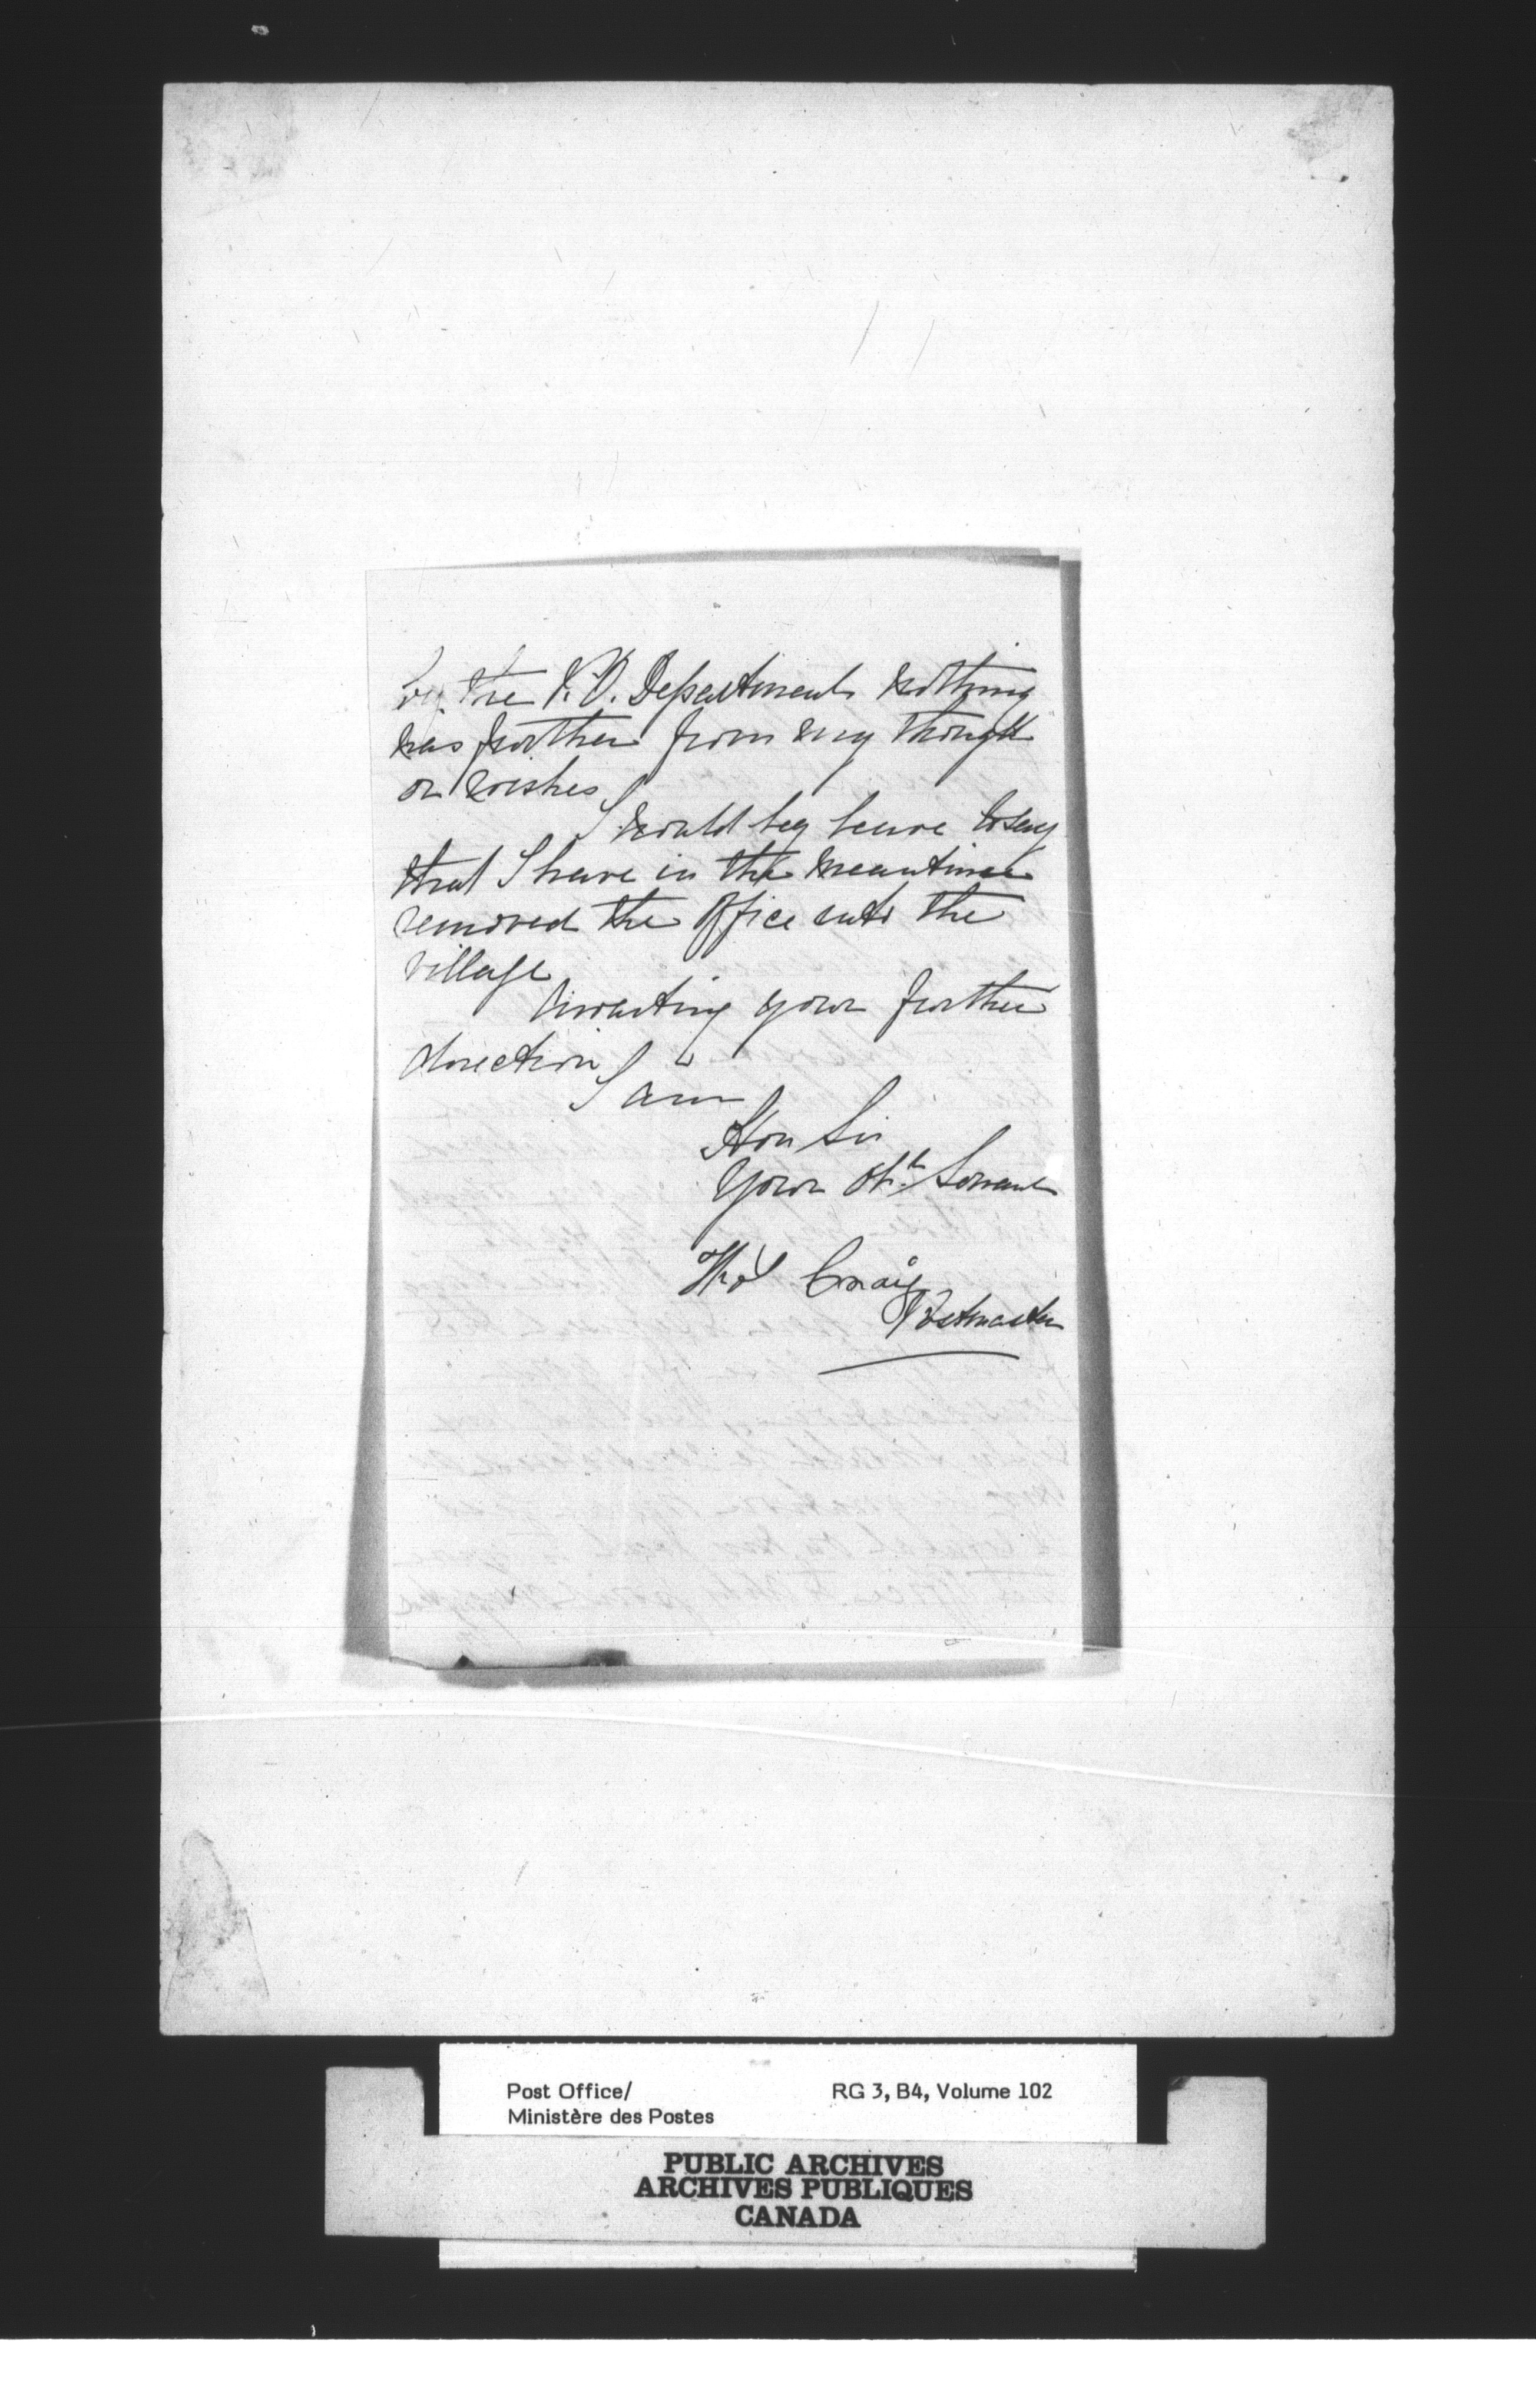 by the P.O. Department nothing
was further from my thought
or wishes
I would beg leave to say
that I have in the meantime
removed the Office into the
village
Awaiting your further
direction
I am
Hon Sir
Your Obt Servant
Thos Craig
Postmaster
Post Office/ RG 3, B4, Volume 102
Ministère des Postes
PUBLIC ARCHIVES
ARCHIVES PUBLIQUES
CANADA